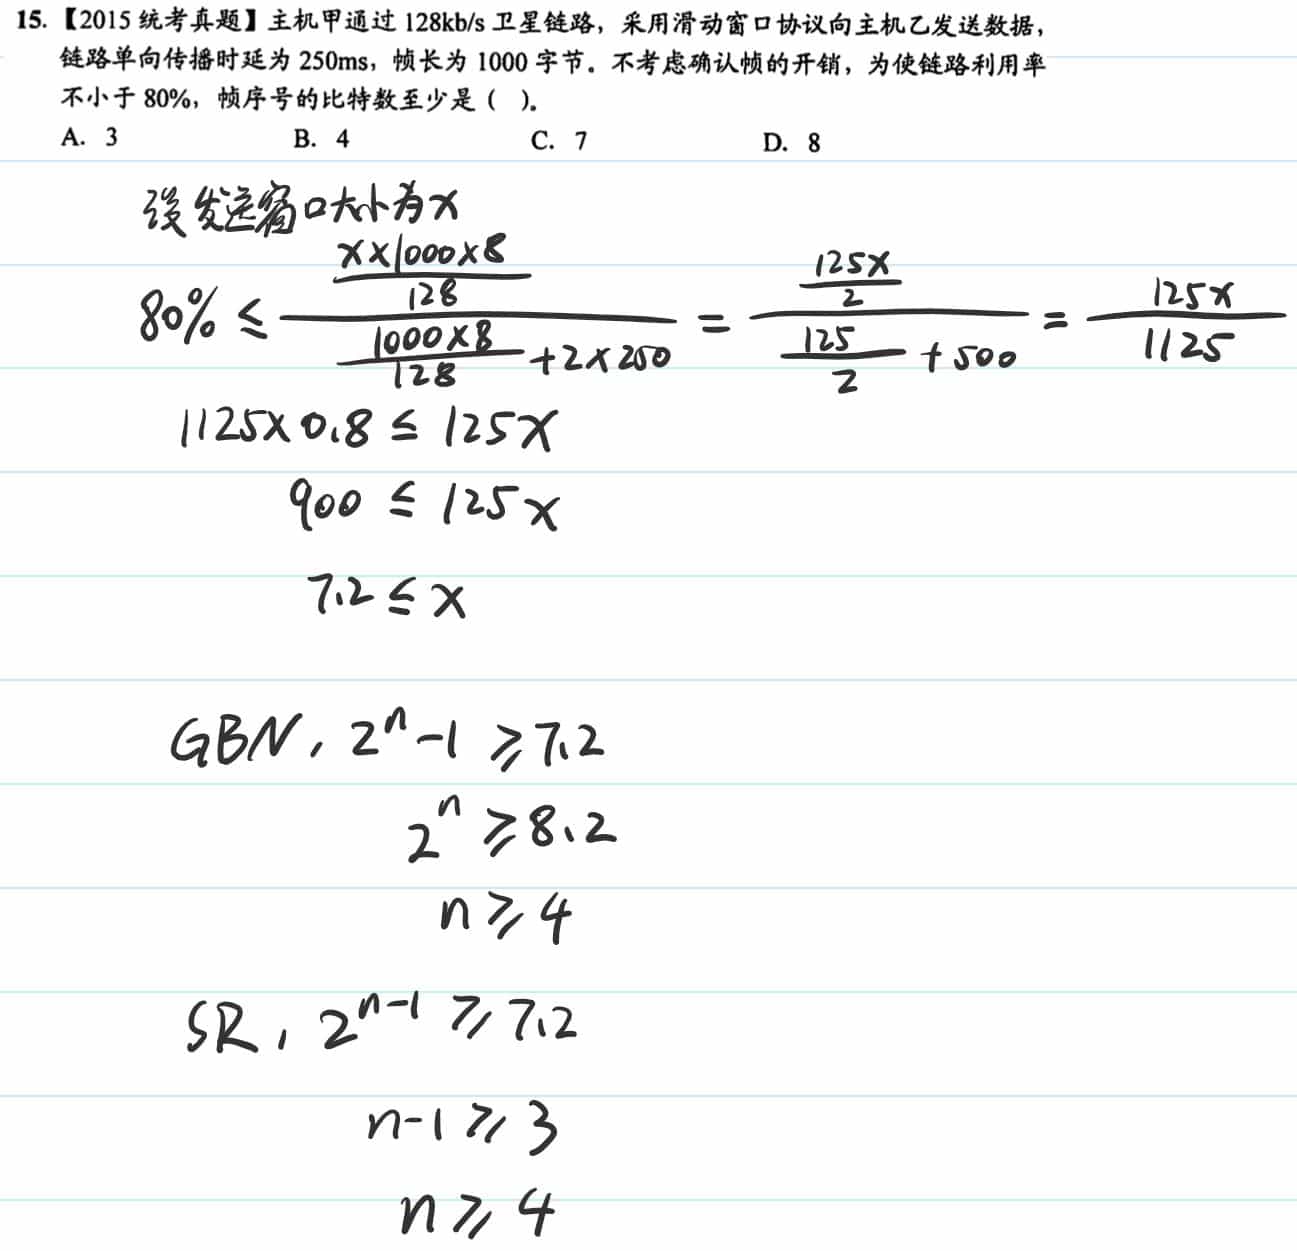 15.【2015 统考真题】主机甲通过 128kb/s 卫星链路，采用滑动窗口协议向主机乙发送数据，
链路单向传播时延为 250ms，帧长为 1000 字节。不考虑确认帧的开销，为使链路利用率
不小于 80%，帧序号的比特数至少是（ ）。
A. 3 B. 4 C. 7 D. 8
设发送窗口大小为x
80% ≤ ((x×1000×8)/128)/((1000×8)/128+2×250) = (125x/2)/(125/2+500) = 125x/1125
1125×0.8 ≤ 125x
900 ≤ 125x
7.2 ≤ x
GBN, 2^n-1 ≥ 7.2
2^n ≥ 8.2
n ≥ 4
SR, 2^(n-1) ≥ 7.2
n-1 ≥ 3
n ≥ 4